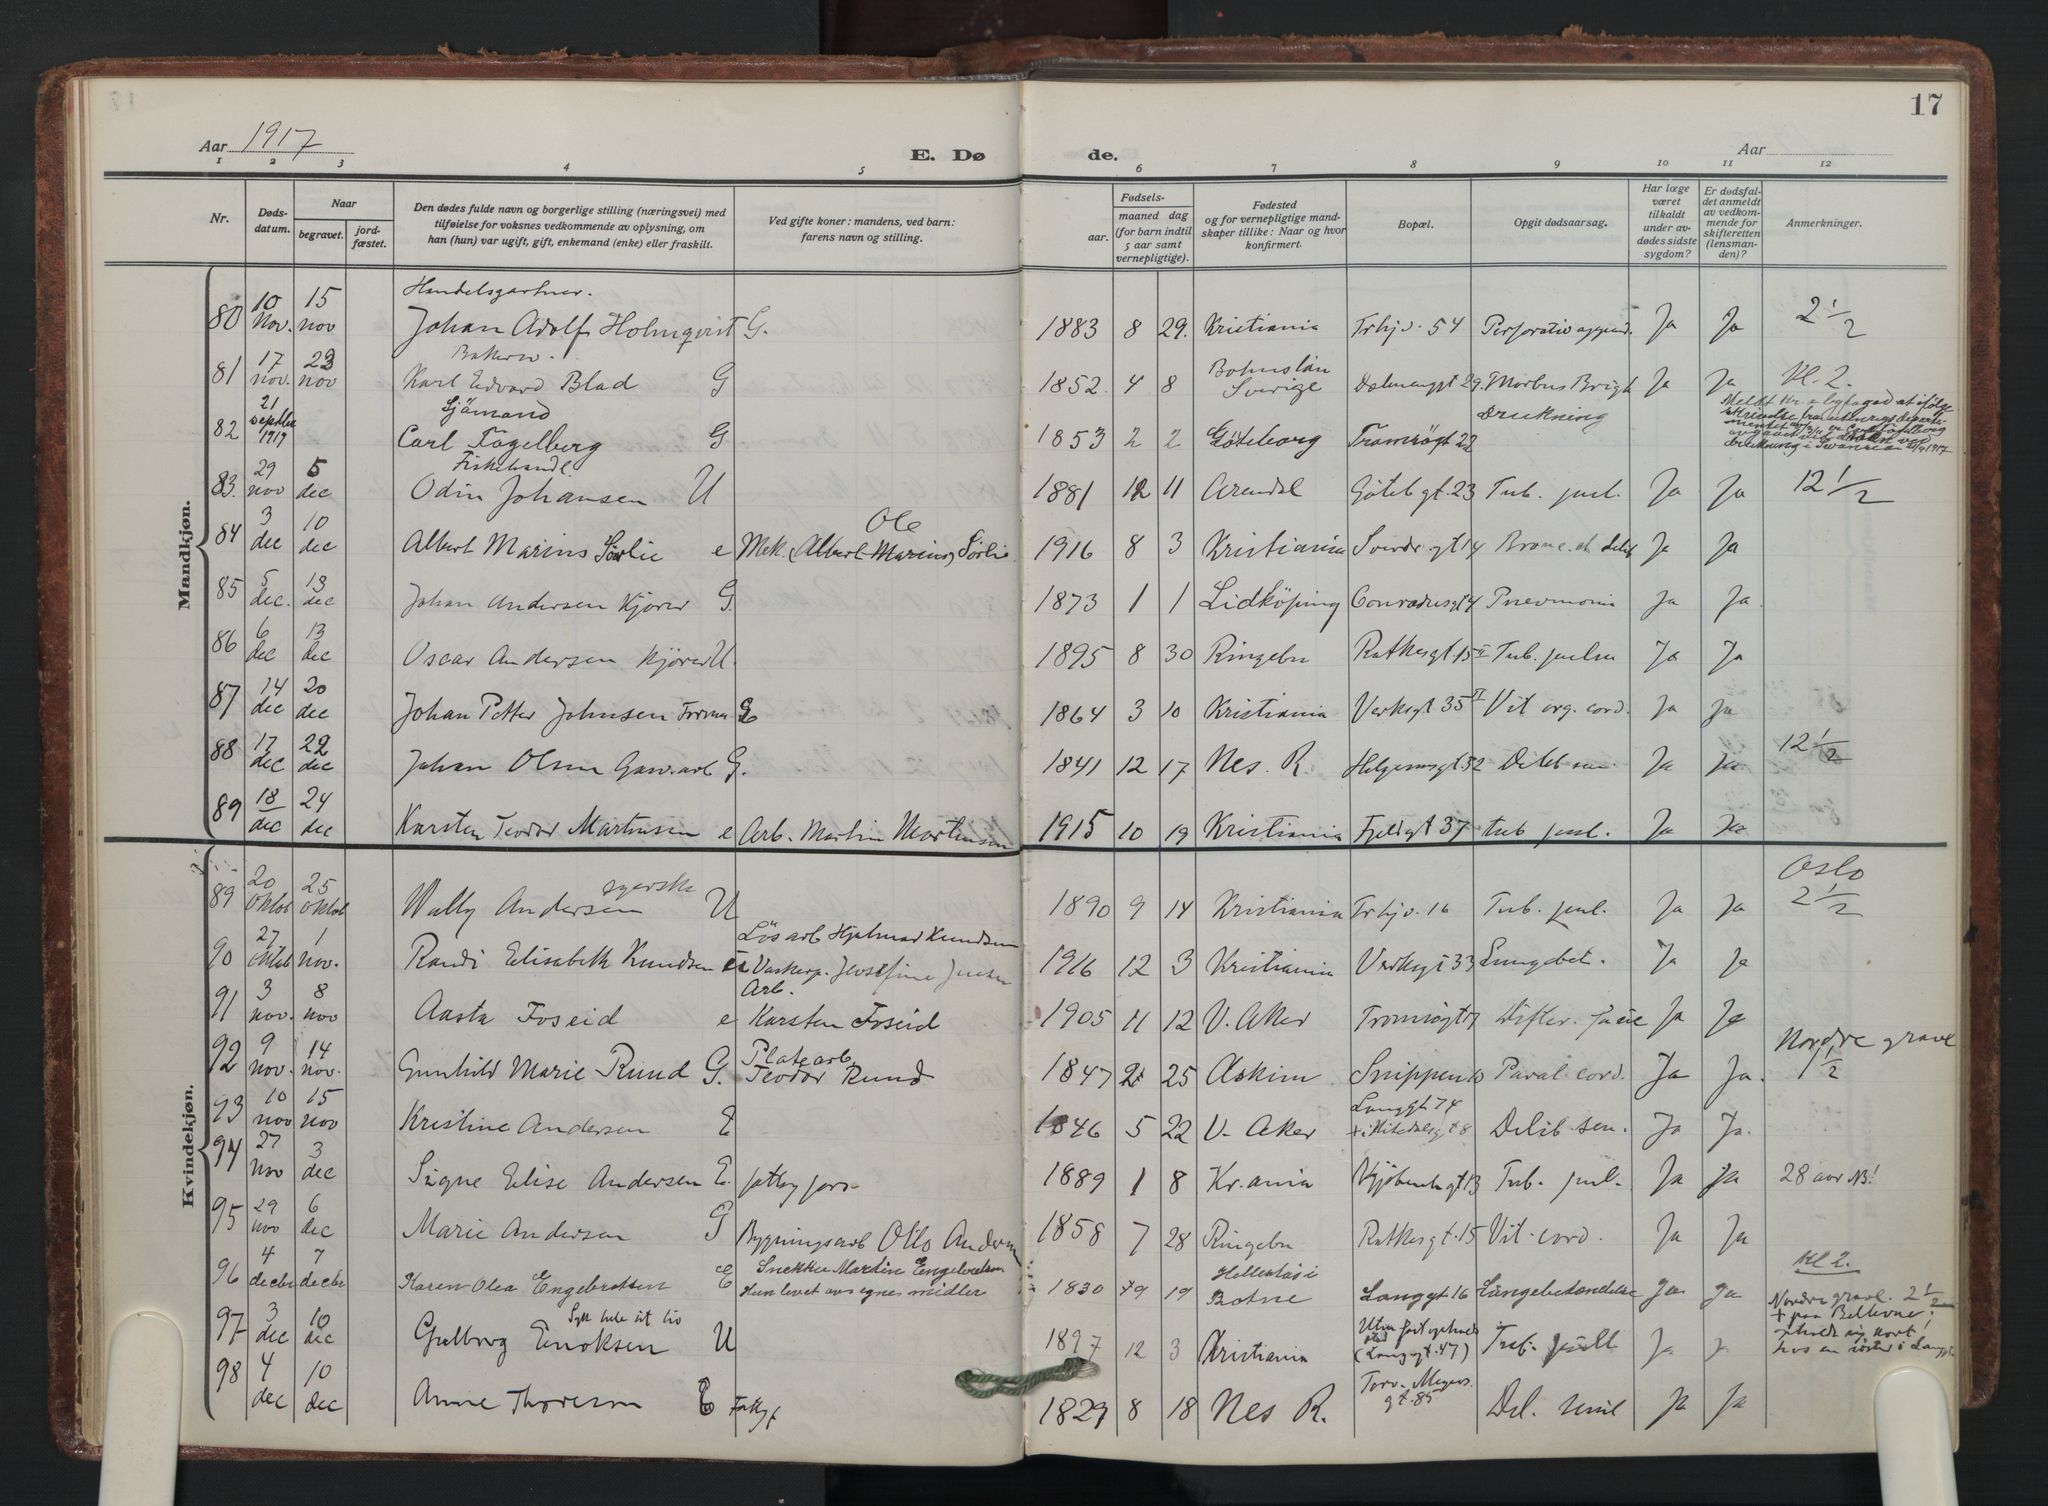 17
Aar 1917
E. Dø
de.
Aar
1 2 3 4 5 6 7 8 9 10 11 12
Nr.
Døds-
datum.
Naar
begravet.
jord-
fæstet.
Den dødes fulde navn og borgerlige stilling (næringsvei) med
tilføielse for voksnes vedkommende av oplysning, om
han (hun) var ugift, gift, enkemand (enke) eller fraskilt.
Ved gifte koner: mandens, ved barn:
farens navn og stilling.
Fødsels-
aar.
maaned dag
(for barn indtil
5 aar samt
vernepligtige).
Fødested
og for vernepligtige mand-
skaper tillike: Naar og hvor
konfirmert.
Bopæl.
Opgit dødsaarsag.
Har læge
været
tilkaldt
under av-
dødes sidste
sygdom?
Er dødsfal-
det anmeldt
av vedkom-
mende for
skifteretten
(lensman-
den)?
Anmerkninger.
Mandkjøn.
Handelsgartner.
80 10 Nov. 15 nov Johan Adolf Holmqvist G. 1883 8 29. Kristiania Trhjv. 54 Ja Ja 2 1/2
81 17 nov. 23 nov Karl Edvard Blad G 1852. 4 8 Sverige 29. Morbus Ja Ja Kl. 2.
Sjömand
82 21 1917 Carl Fagelberg G 1853 2 2 Göteborg Tromsøgt 22 Drukning
83. 29 nov 5 dec Odin Johansen U 1881 12 11 Arendal Göteb gt. 23 Tub. pul. Ja Ja 12 1/2
Ole
84 3 dec 10 dec Albert Marius Sørlie e Mek. (Albert Marius) Sørlie 1916 8 3 Kristiania Ja Ja
85 5 dec. 13 dec Johan Andersen Kjører G. 1873 1 1 Lidköping Pnevmonia Ja Ja
86 6 dec 13 dec Oscar Andersen Kjører U. 1895 8 30 Ringebu Ratkesgt 15 II Tub. pulm Ja Ja
87 14 dec 20 dec Johan Petter Johnsen G 1864 3 10 Kristiania Verksgt 35 II Vit org. cord. Ja Ja
88 17 dec 22 dec Johan Olsen G. 1841 12 17 Nes. R. Helgesensgt 52 Ja Ja 12 1/2
89 18 dec 24 dec Karsten Teodor Martinsen e Arb. Martin Martinsen 1915 10 19 Kristiania Fjeldgt 37 tub pul. Ja Ja
Kvindekjøn.
syerske Oslo
89 20 Oktob 25 Oktob Wally Andersen U 1890 9 14 Kristiania Trhjv. 16 Tub. pul. Ja Ja 2 1/2
Løsarb Hjalmar Knudsen
90 27 Oktob 1 nov. Randi Elisabeth Knudsen Josefine 1916 12 3 Kristiania Verksgt 33 Lungebet. Ja Ja
Arb.
91 3 nov. 8 nov Aasta Foseid e Karsten Foseid 1905 11 12 V. Aker Tromsøgt 7 Ja Ja
Platearb. Nordre gravl
92 9 nov. 14 nov. Gunhild Marie Rund G. Teodor Rund 1847 2 25 Askim Snippen 10 Paral cord. Ja Ja. 1 1/2
Langgt 74
93 10 nov 15 nov Kristine Andersen E 1846 5 22 V. Aker Debil. sen. Ja Ja.
94 27 nov 3 dec Signe Elise Andersen E. 1889 1 8 Kr.ania Kjøbenh gt 13 Tub. pul. Ja Ja 28 aar NB!
95 29 nov 6 dec Marie Andersen G Bygningsarb Otto Andersen 1858 7 28 Ringebu Ratkesgt. 15 Vit. cord. Ja Ja
Snekker Martin Engebretsen Kl 2.
96 4 decbr 7 decbr Karen Olea Engebretsen E Hun levet av egne midler 1830 9 19 Botne Langgt 16 Lungebetændelse Ja Ja
Syk hele sit liv
97 3 dec 10 dec Gulborg Enoksen U 1897 12 3 Kristiania (Langgt. 47) Ja Ja
Nordre gravl. 2 1/2
98 4 dec 10 dec Anne Thoresen E 1829 8 18 Nes R. Torv. Meyers gt. 85 Del. senil Ja Ja